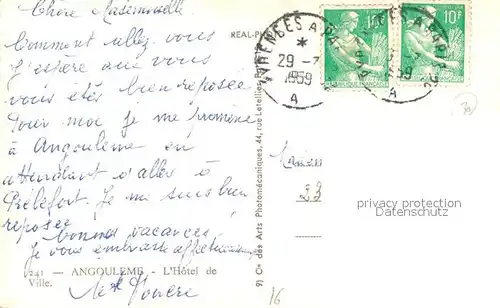 Chère Mademoiselle
Comment allez vous
J'espère que vous
vous êtes bien reposée
Pour moi je me promène
à Angoulème en
attendant d'alles à
Je me suis bien
reposée
bonnes vacances
Je vous embrasse affectueusement
241 — ANGOULEME - L'Hôtel de
Ville.
REAL-PH
9) Cie des Arts Photomécaniques, 44, rue Letellier
29 - 7
1959
A
10F
REPUBLIQUE FRANÇAISE
10F
A
privacy protection
Datenschutz
16